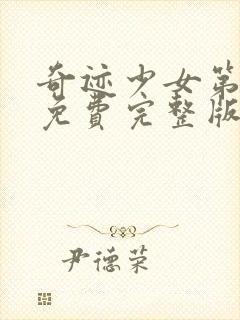 奇迹少女第
免费完整版
尹德荣